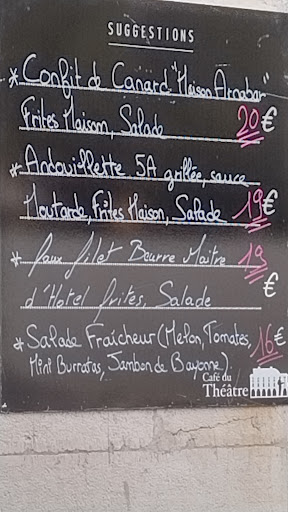 SUGGESTIONS
* Confit de Canard "Maison Arnabar"
Frites Maison, Salade 20€
* Andouillette 5A grillée, sauce
Moutarde, Frites Maison, Salade 19€
* faux filet Beurre Maitre 19
d'Hotel frites, Salade €
* Salade Fraîcheur (Melon, Tomates, 16€
Mini Burratas, Jambon de Bayonne).
Café du
Théâtre